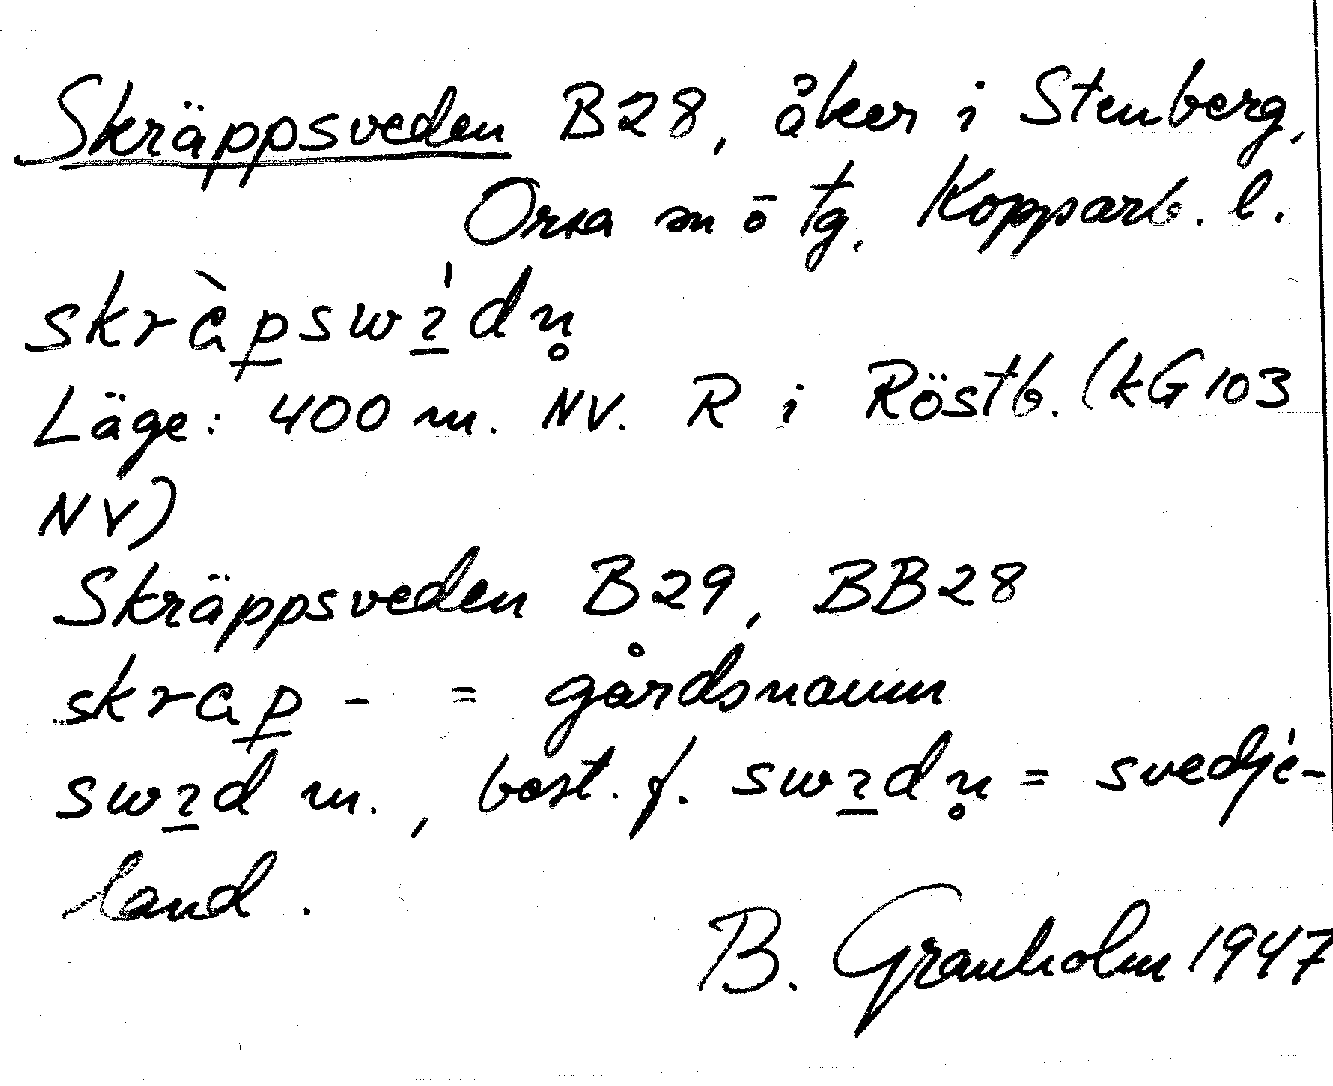 Skräppsveden B28, åker i Stenberg,
Orsa sn ö tg. Kopparb. l.
Läge: 400 m. NV. R i Röstb. (kG 103
NV)
Skräppsveden B29, BB28
skrap - = gårdsnamn
m., best. f. = svedje-
land.
B. Granholm 1947